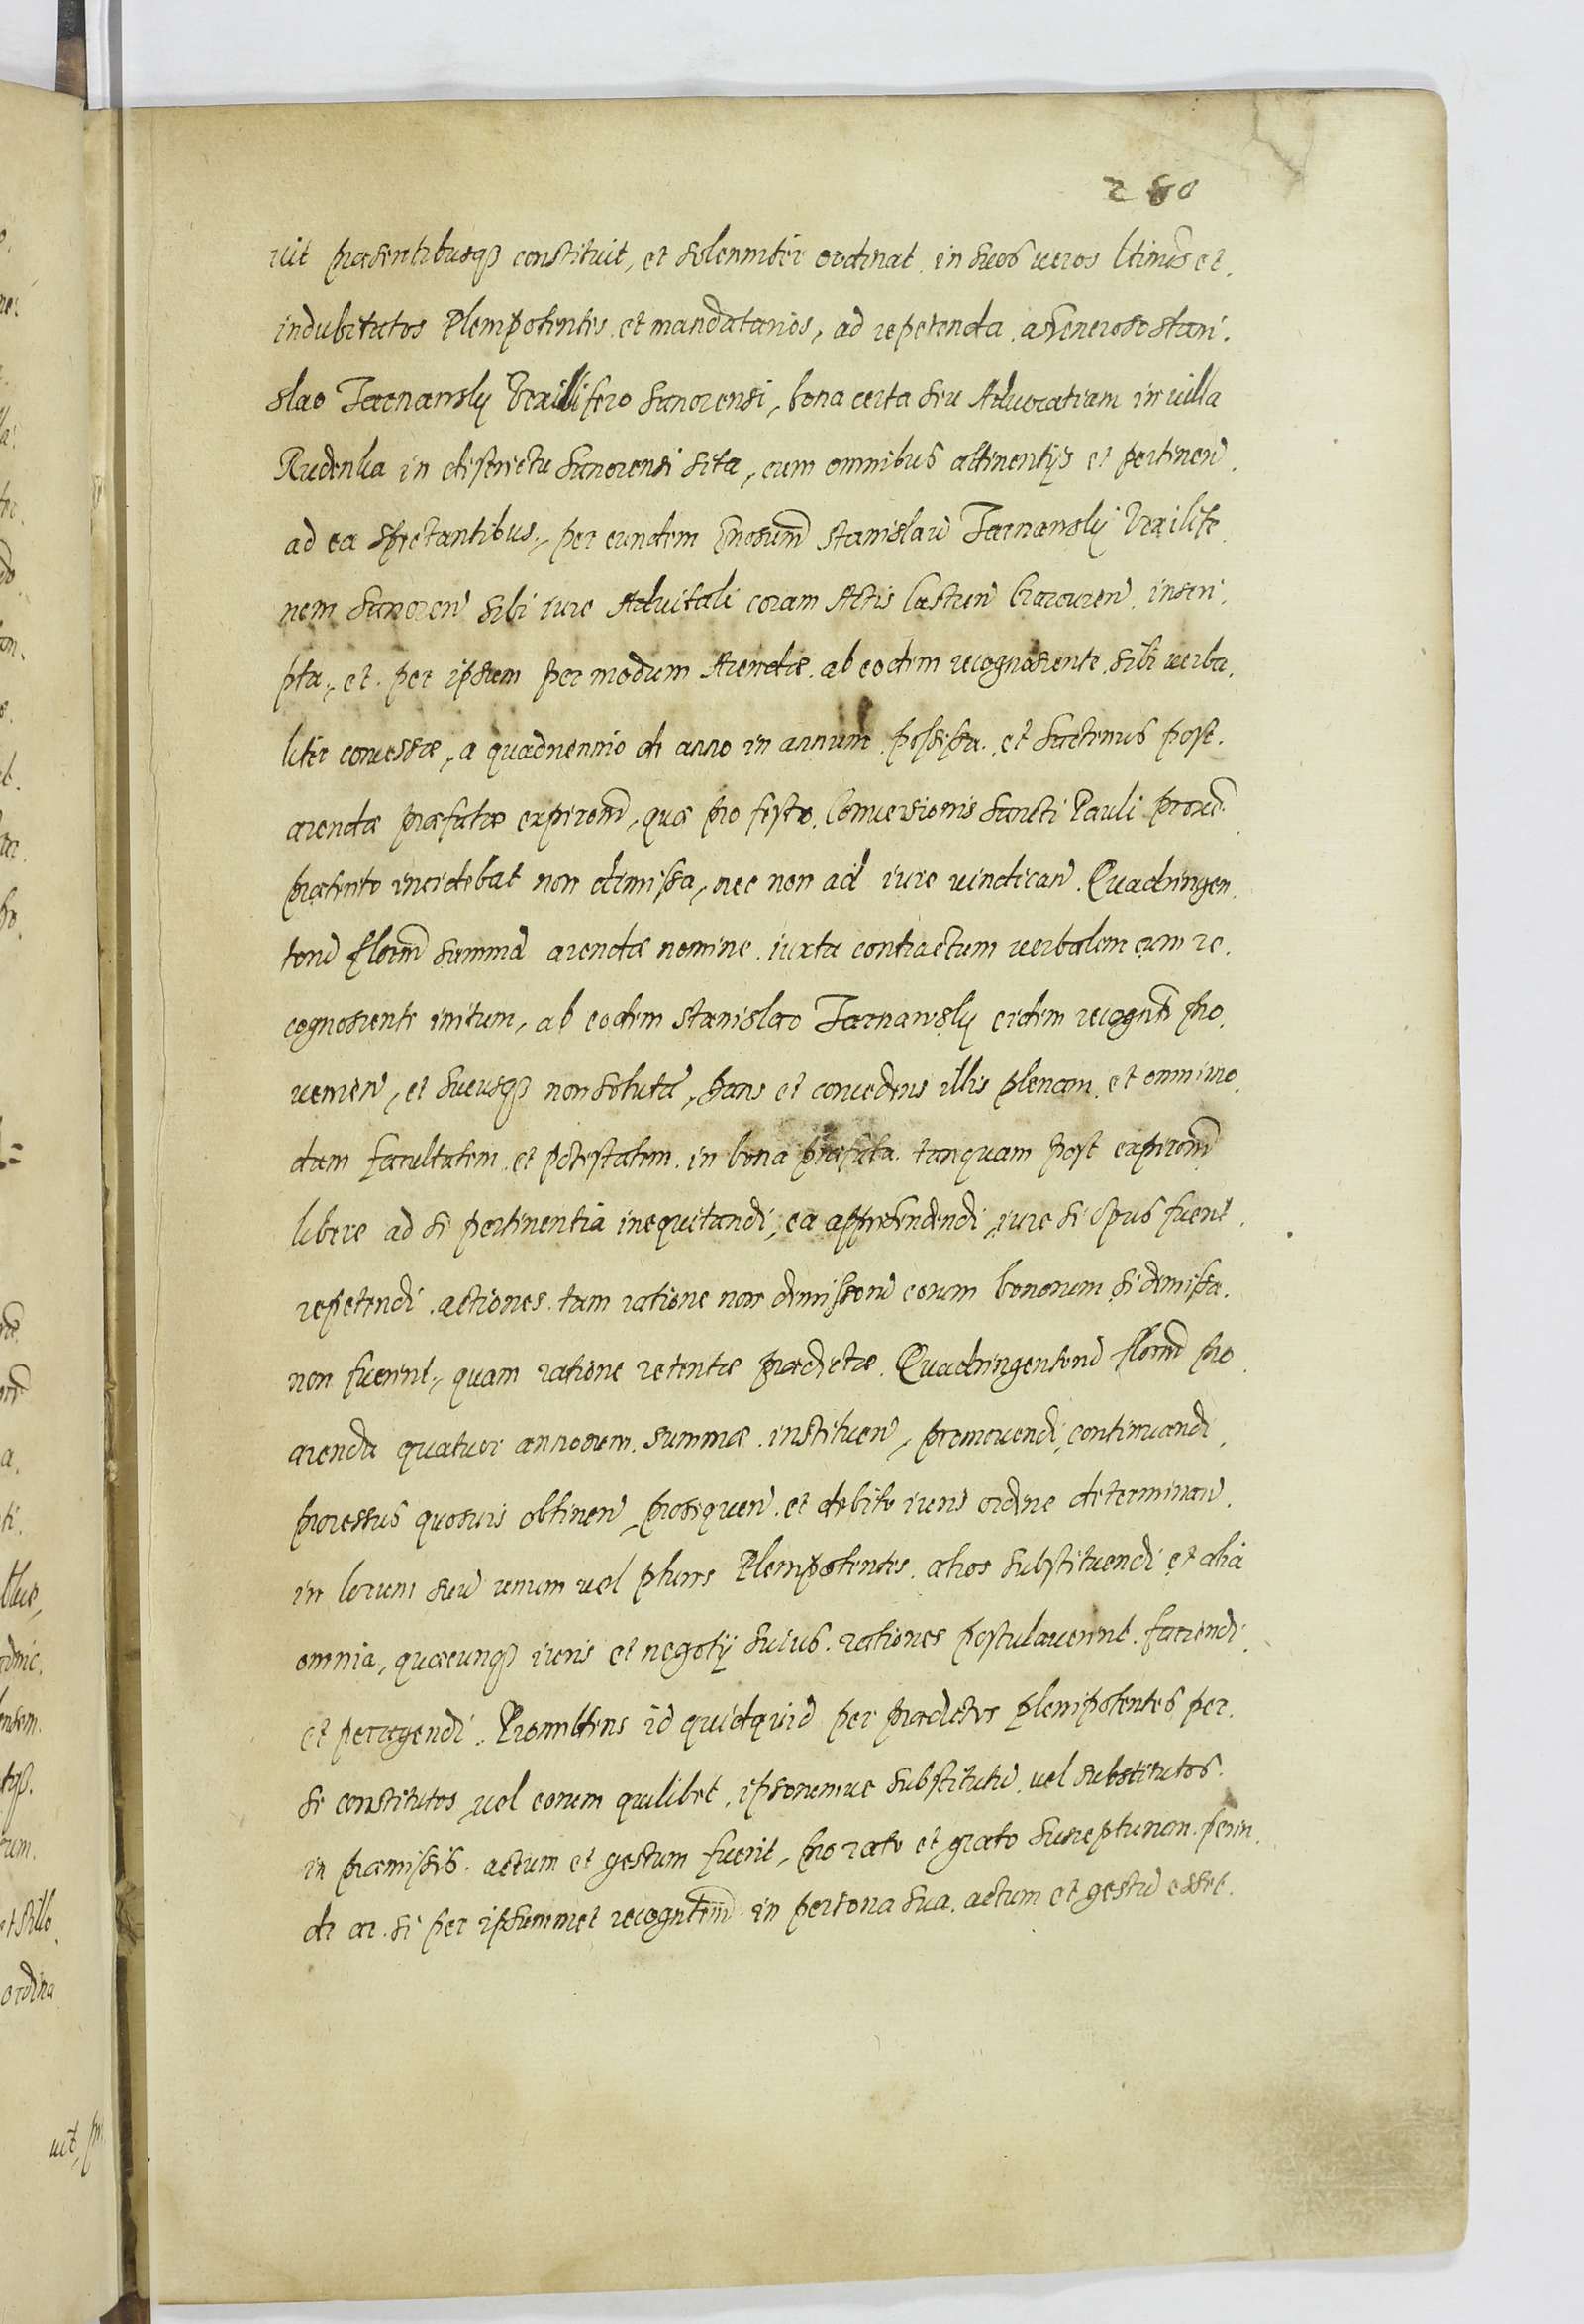 280
uit præsentibusq constituit, et solenniter ordinat in suos ueros ltimos et
indubitatos Plenipotentes et mandatarios, ad repetenda a Generoso Stani
slao Tarnawsky Vexillifero Sanocensi, bona certa seu Aduocatiam in uilla
Rudenka in districtu Sanocensi sita, cum omnibus attinentijs et pertinen
ad ea spectantibus, per eundem Gnosum Stanislaū Tarnawsky Vexilife
rum Sanocen sibi iure Aduitali coram Actis Castren Cracouien inscri
pta, et per ipsum per modum Arendæ ab eodem recognoscente sibi uerba
liter concessæ, a quadriennio de anno in annum possessa et hactenus post
arendæ præfatæ expironem, quæ pro festo Conuersionis Sancti Pauli proxe
præterito incidebat non dimissa, nec non ad iure uindican Quadringen
torū florm summā arendæ nomine iuxta contractum uerbalem cum re
cognoscente initum, ab eodem Stanislao Tarnawsky eidem recognti pro
uenien, et hucusq non solutā, Dans et concedens illis plenam et omnimo
dam facultatem et potestatem in bona præfata tanquam post expironem
libere ad se pertinentia inequitandi, ea apprehendendi, iure si opus fuerit
repetendi actiones tam ratione non dimissorū eorum bonorum si dimissa
non fuerint, quam ratione retentæ prædictæ Quadringentorū florm pro
arenda quatuor annorum summæ instituen, promouendi, continuandi
processus quosuis obtinen, prosequen et debito iuris ordine determinan
in locum suū unum uel plures Plenipotentes alios substituendi et alia
omnia, quæcunq iuris et negotij huius rationes postulauerint faciendi
et peragendi. Promittens id quidquid per prædictos plenipotentes per
se constitutos uel eorum quilibet, ipsorumue substitutū uel substitutos
in præmissis actum et gestum fuerit, pro rato et grato suscepturum perin
de ac si per ipsummet recogntem in persona sua actum et gestū esset.